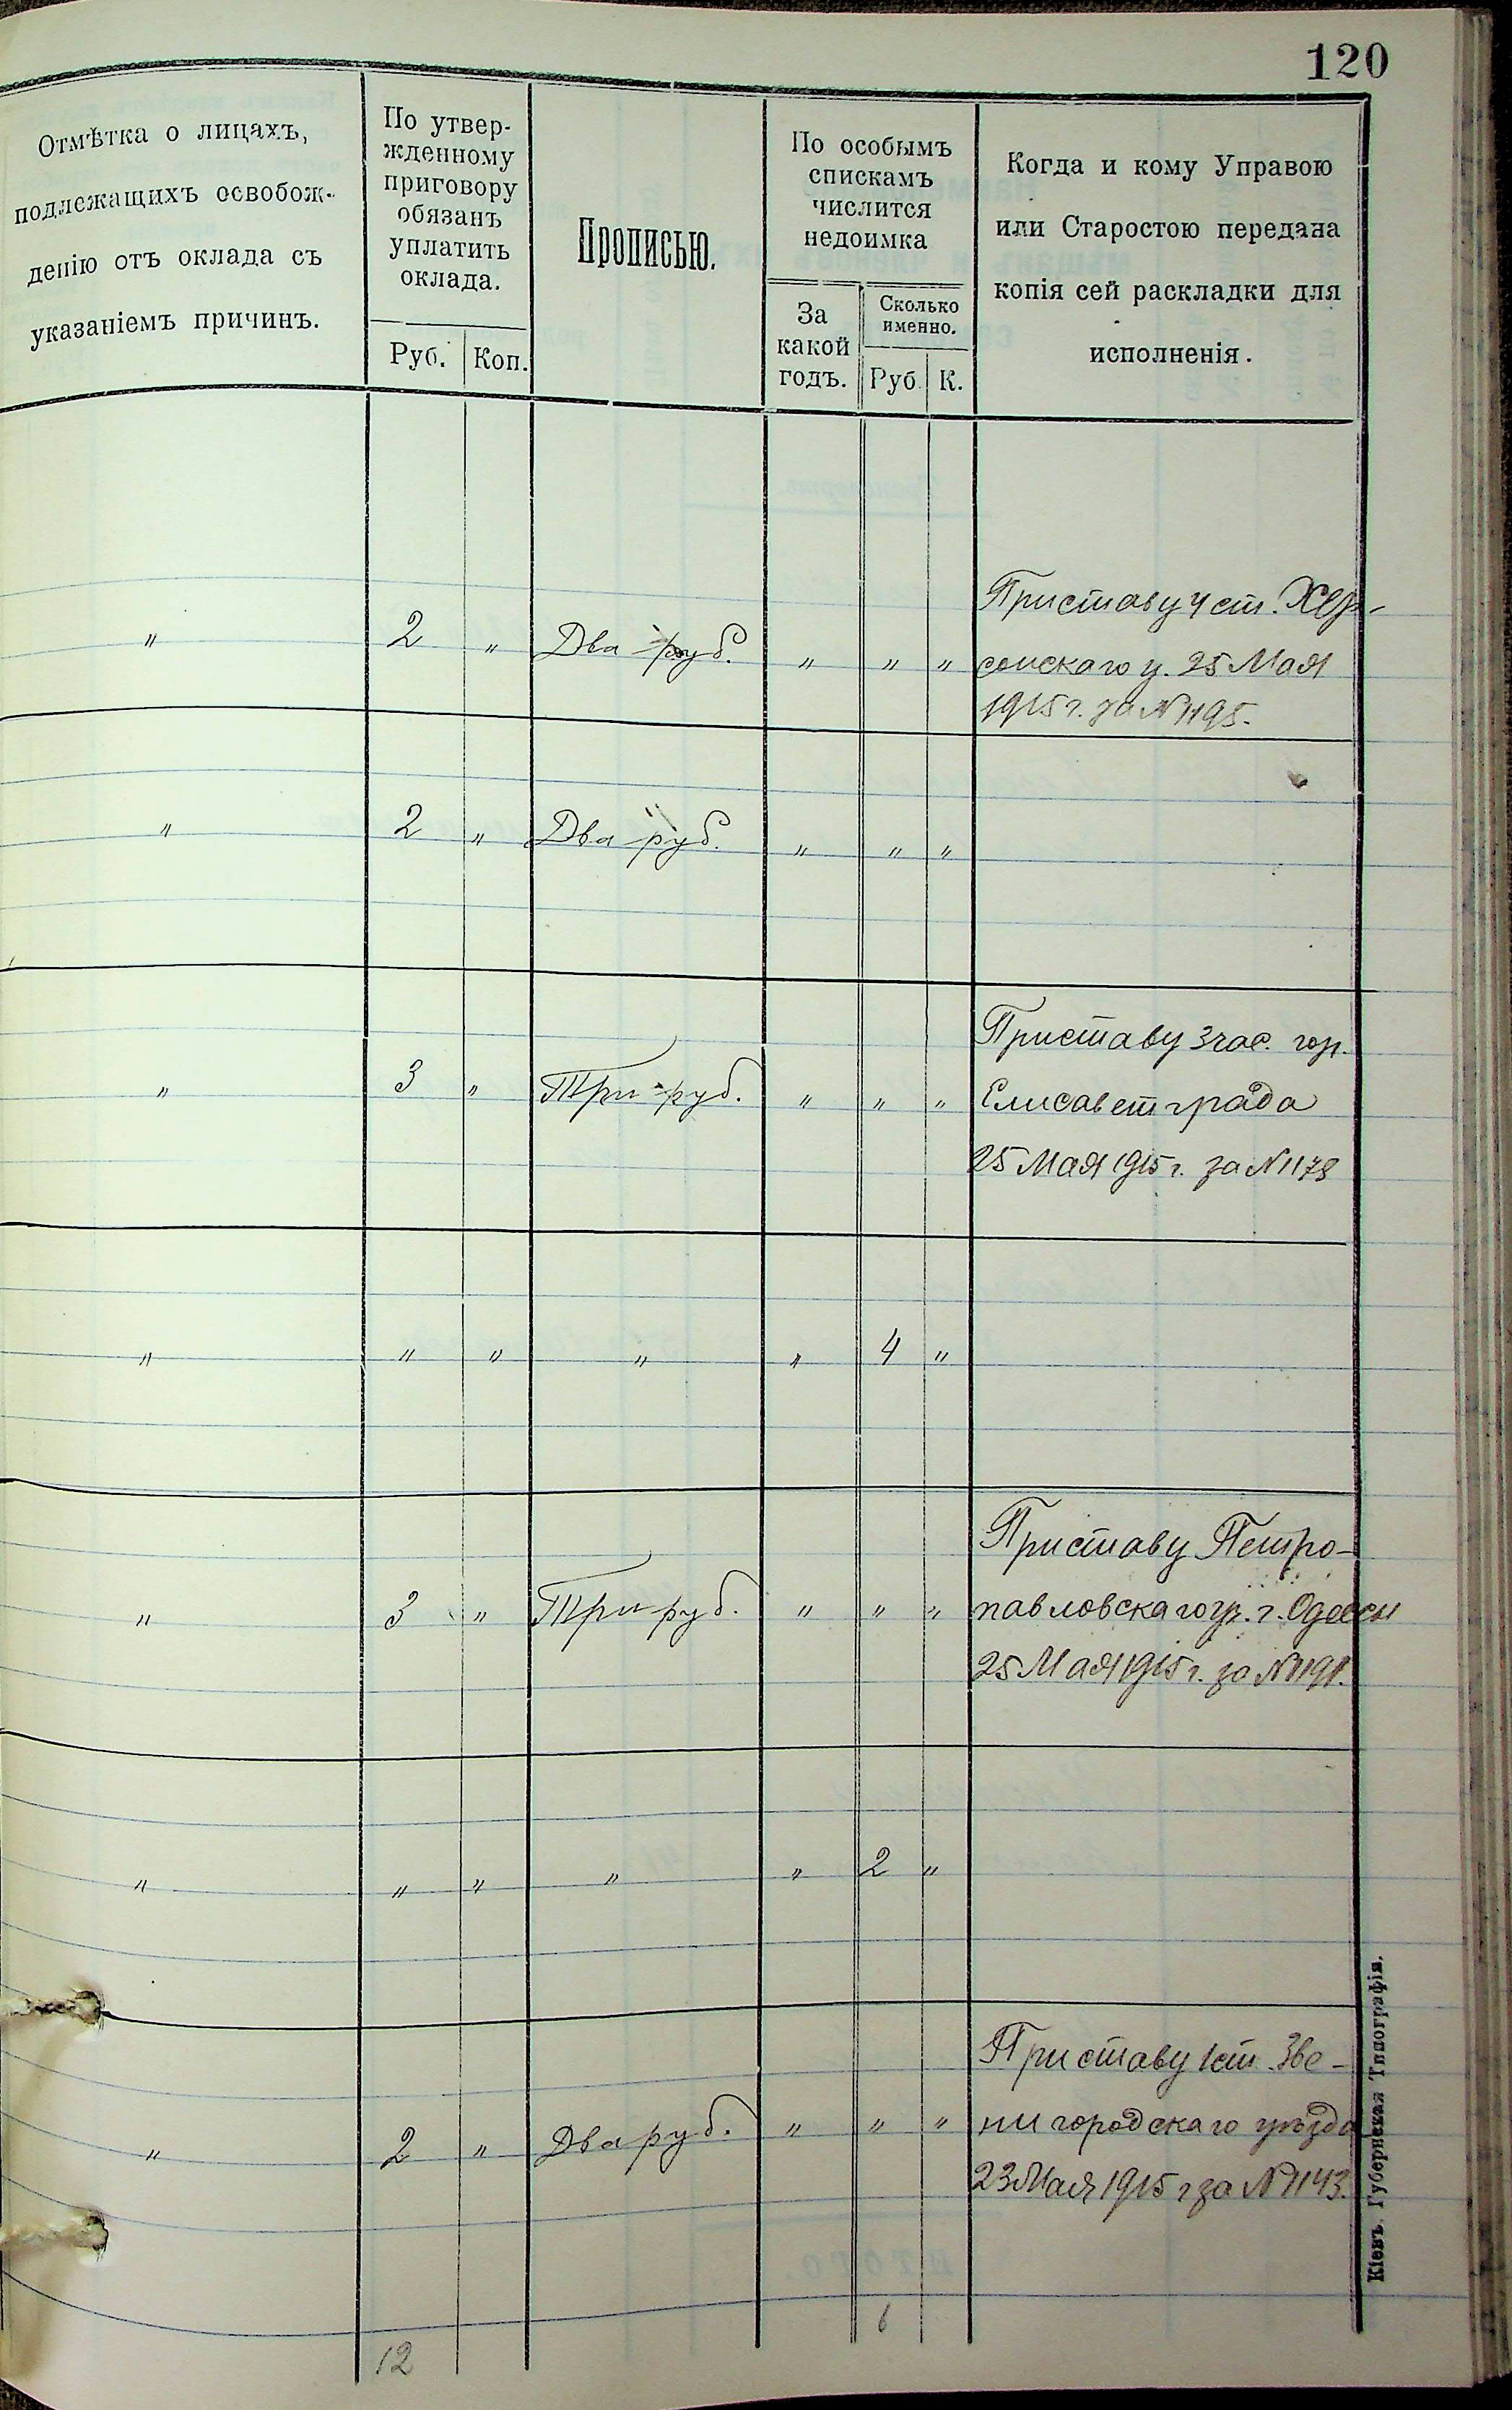 120
Отмѣтка о лицахъ,
подлежащихъ освобож-
денію отъ оклада съ
указаніемъ причинъ.
По утвер-
жденному
приговору
обязанъ
уплатить
оклада.
Руб. Коп.
Прописью.
По особымъ
спискамъ
числится
недоимка
За
какой
годъ.
Сколько
именно.
Руб. К.
Когда и кому Управою
или Старостою передана
копія сей раскладки для
исполненія.
Приставу 4 ст. Хер-
" 2 " Два руб. " " " сонскаго у. 25 Мая
1915 г. за № 1195.
" 2 " Два руб. " " "
Приставу 3 час. гор.
" 3 " Три руб. " " " Елисаветграда
25 Мая 1915 г. за № 1178
" " " " " 4 "
Приставу Петро-
" 3 " Три руб. " " " павловскаго уч. г. Одессы
25 Мая 1915 г. за № 1191.
" " " " " 2 "
Приставу 1 ст. Зве-
" 2 " Два руб. " " " нигородскаго уѣзда
23 Мая 1915 г за № 1143.
12 6
Кіевъ. Губернская Типографія.